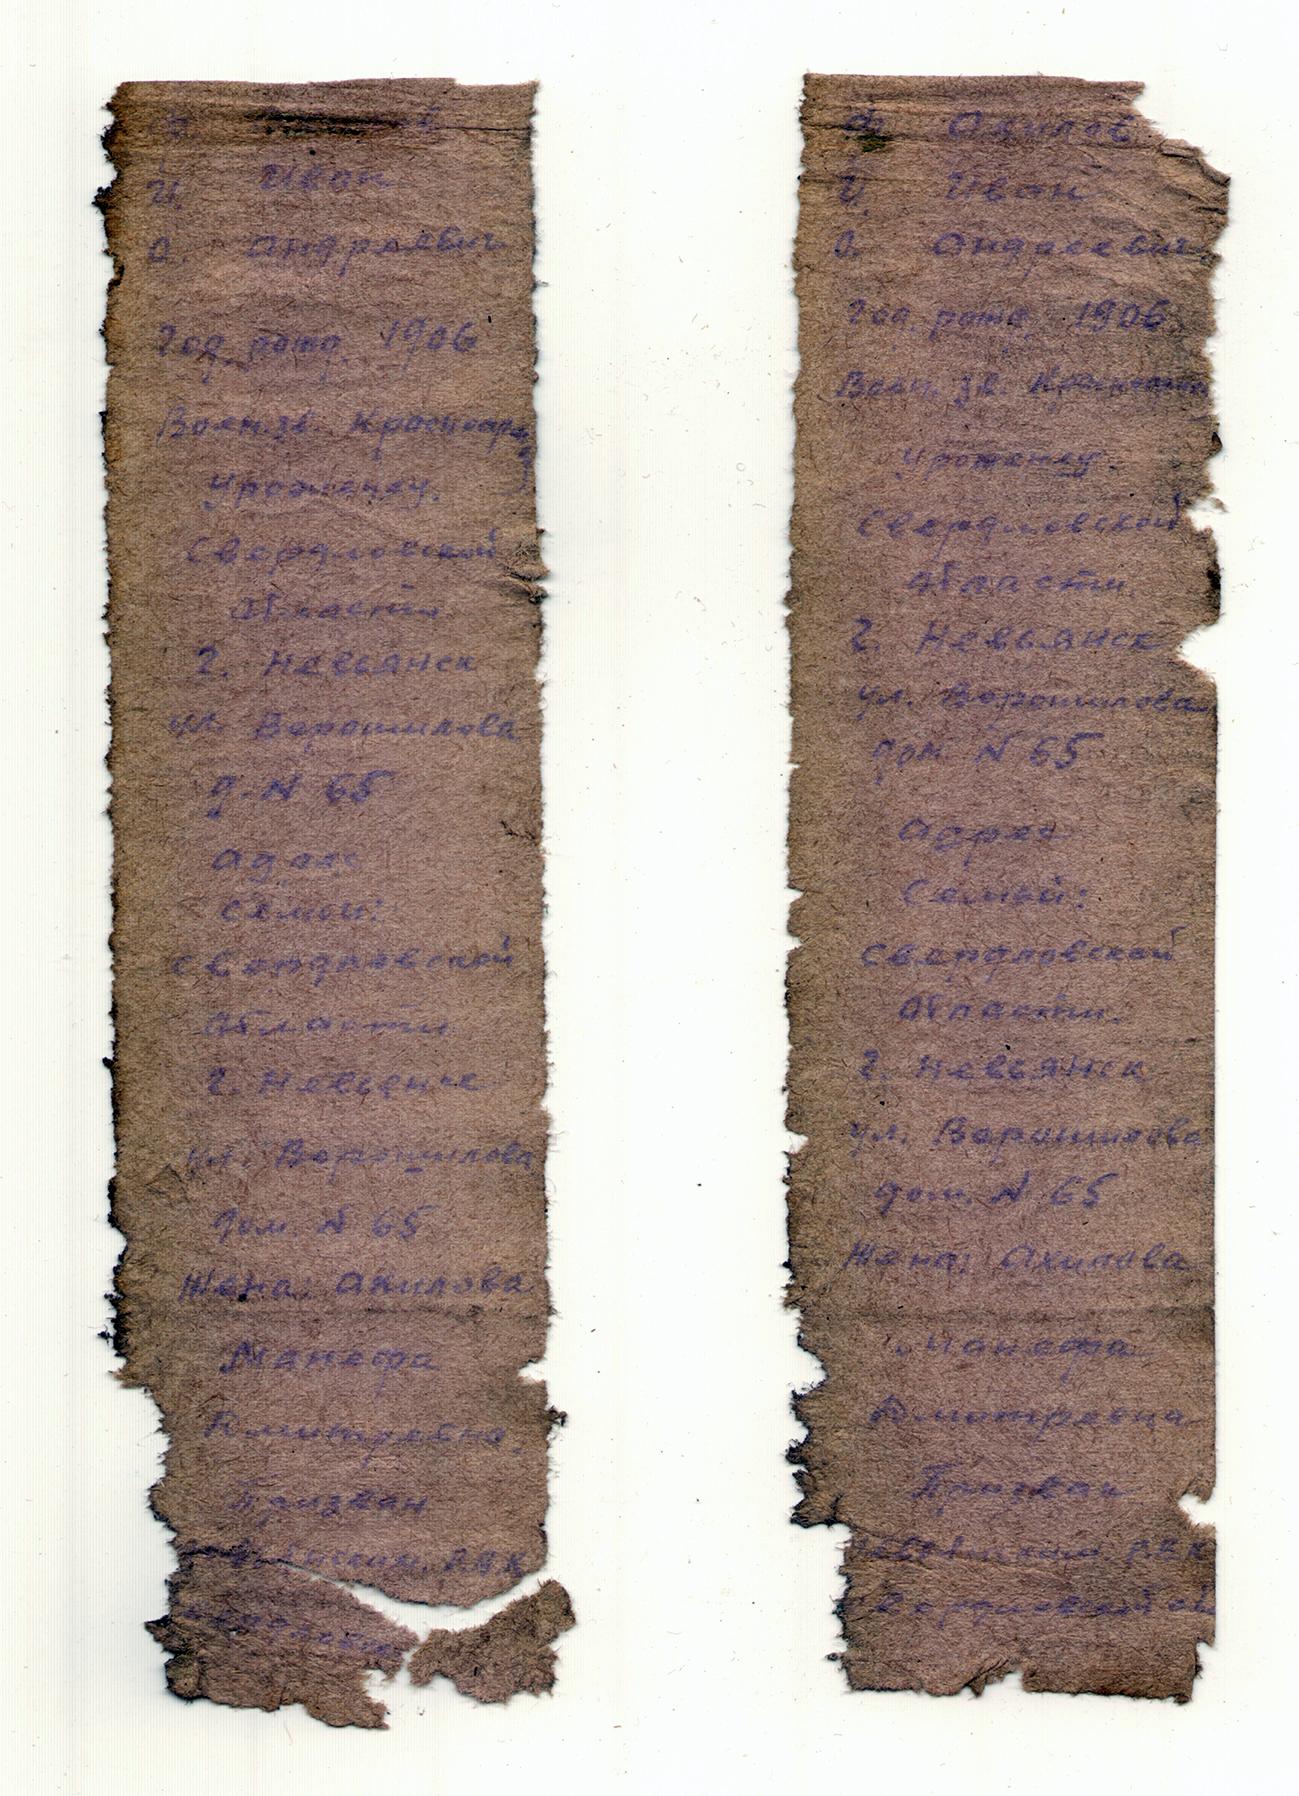 И. Иван
О. Андреевич
Год. рожд. 1906
Воен. зв. Красноар
Уроженец.
Свердловской
области
г. Невьянск
ул. Ворошилова
д. N 65
адрес
семьи:
Свердловской
области
г. Невьянск
ул. Ворошилова
дом. N 65
Жена: Ахилова
Манефа
Дмитревна.
Призван
Р.В.К
Ф. Ахилов
И. Иван
О. Андреевич
Год. рожд. 1906
Воен. зв.
Уроженец
Свердловской
области.
г. Невьянск
ул. Ворошилова
дом N 65
адрес
Семьи:
Свердловской
области.
г. Невьянск
ул. Ворошилова
дом. N 65
Жена: Ахилова
Манефа
Дмитревна
Призван
Р.В.К
Свердловской